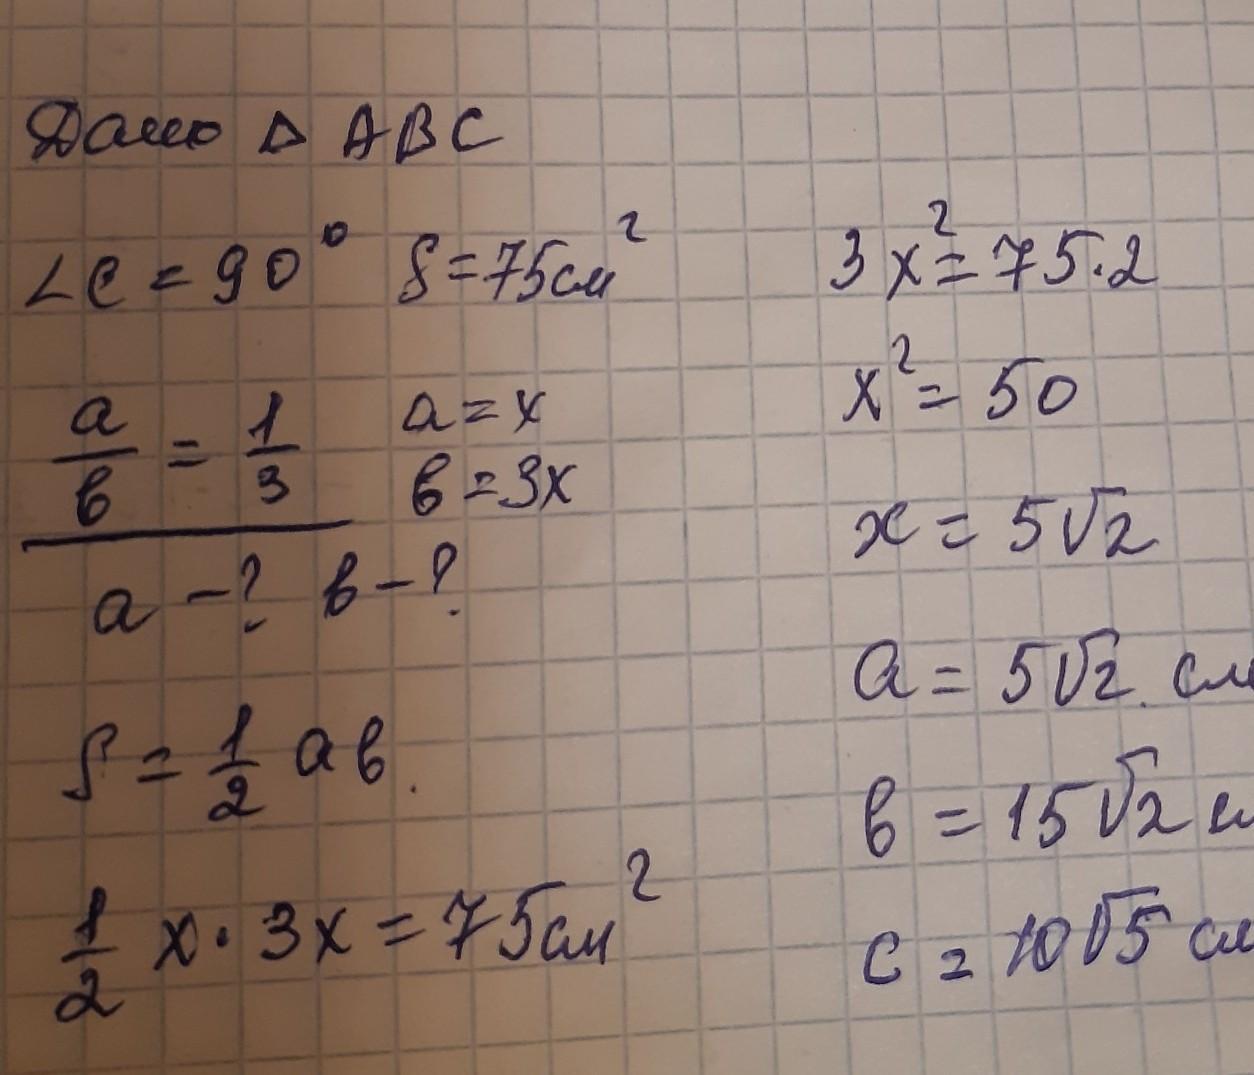 Дано Δ ABC
∠C = 90° S = 75см²
a/в = 1/3 a = x
в = 3x
a - ? в - ?
S = 1/2 aв.
1/2 x · 3x = 75см²
3x² = 75·2
x² = 50
x = 5√2
a = 5√2 см
в = 15√2 см
c = 10√5 см